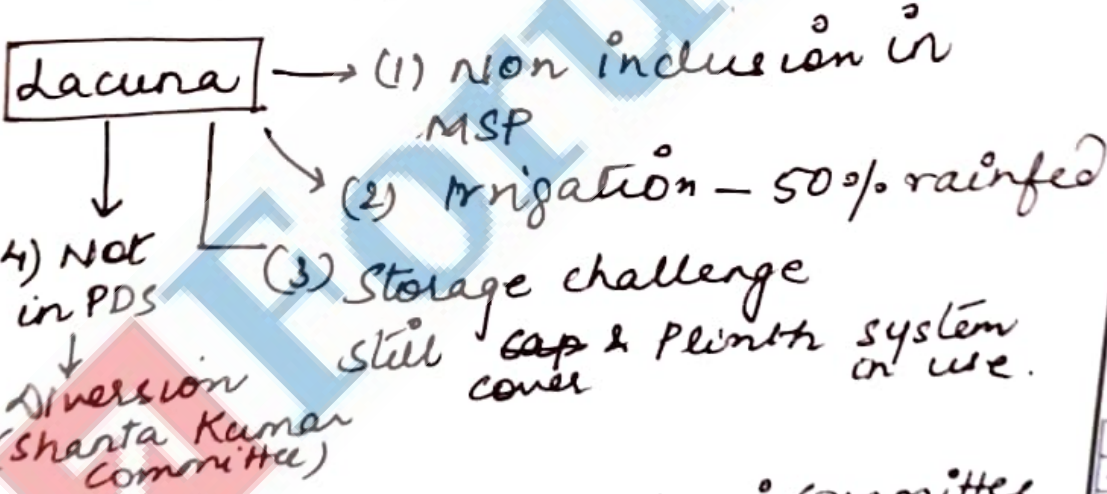 Lacuna → (1) Non inclusion in
MSP
(2) Irrigation – 50% rainfed
(3) Storage challenge
still cover & Plinth system
in use.
4) Not
in PDS
↓
Diversion
(Shanta Kumar
Committee)
committee
Foru